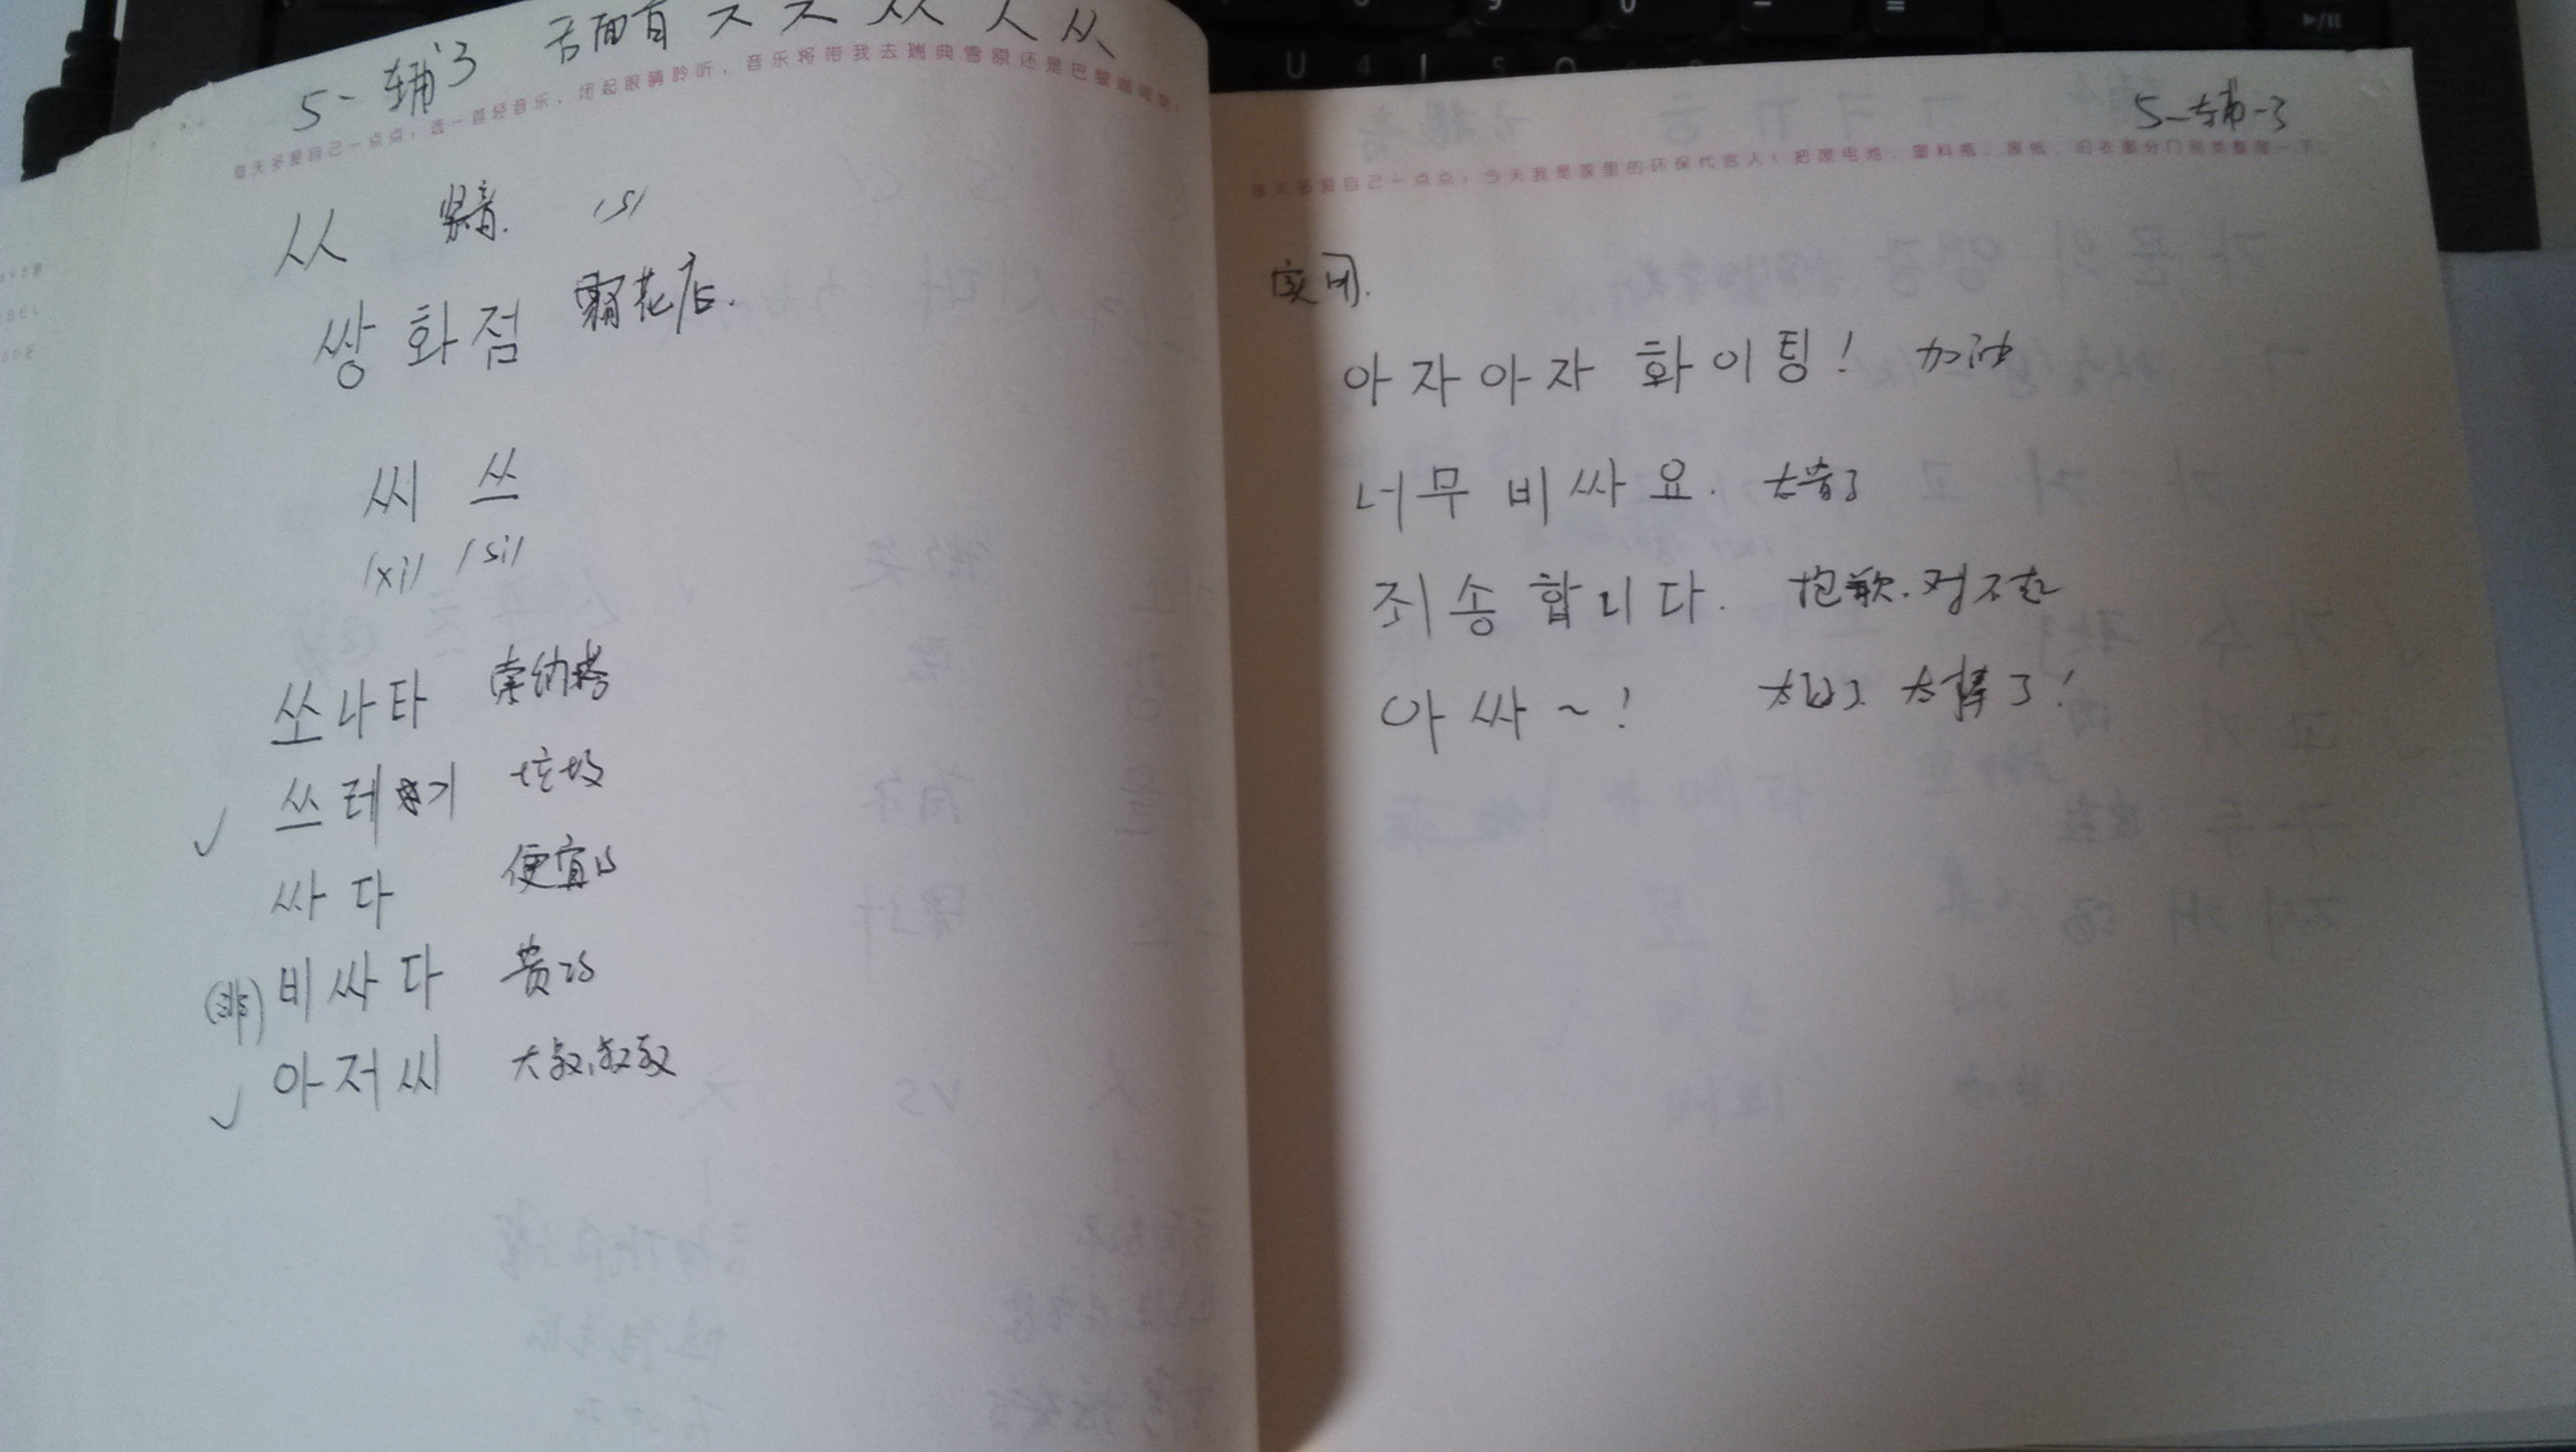 5-辅3 舌面音 ㅈ ㅊ ㅉ ㅅ ㅆ
每天多爱自己一点点:选一首轻音乐,闭起眼睛聆听,音乐将带我去瑞典雪原还是巴黎
ㅆ 紧音. /s/
쌍화점 霜花店.
씨 쓰
/xi/ /si/
쏘나타 索纳塔
✓ 쓰레기 垃圾
싸다 便宜的
(非) 비싸다 贵的
✓ 아저씨 大叔,叔叔
5-辅-3
每天多爱自己一点点:今天我是家里的环保代言人!把废电池、塑料瓶、废纸、旧衣服分门别类整理一下
实用.
아자아자 화이팅! 加油
너무 비싸요. 太贵了
죄송합니다. 抱歉.对不起
아싸~! 太好了 太棒了!
U I O
4 5